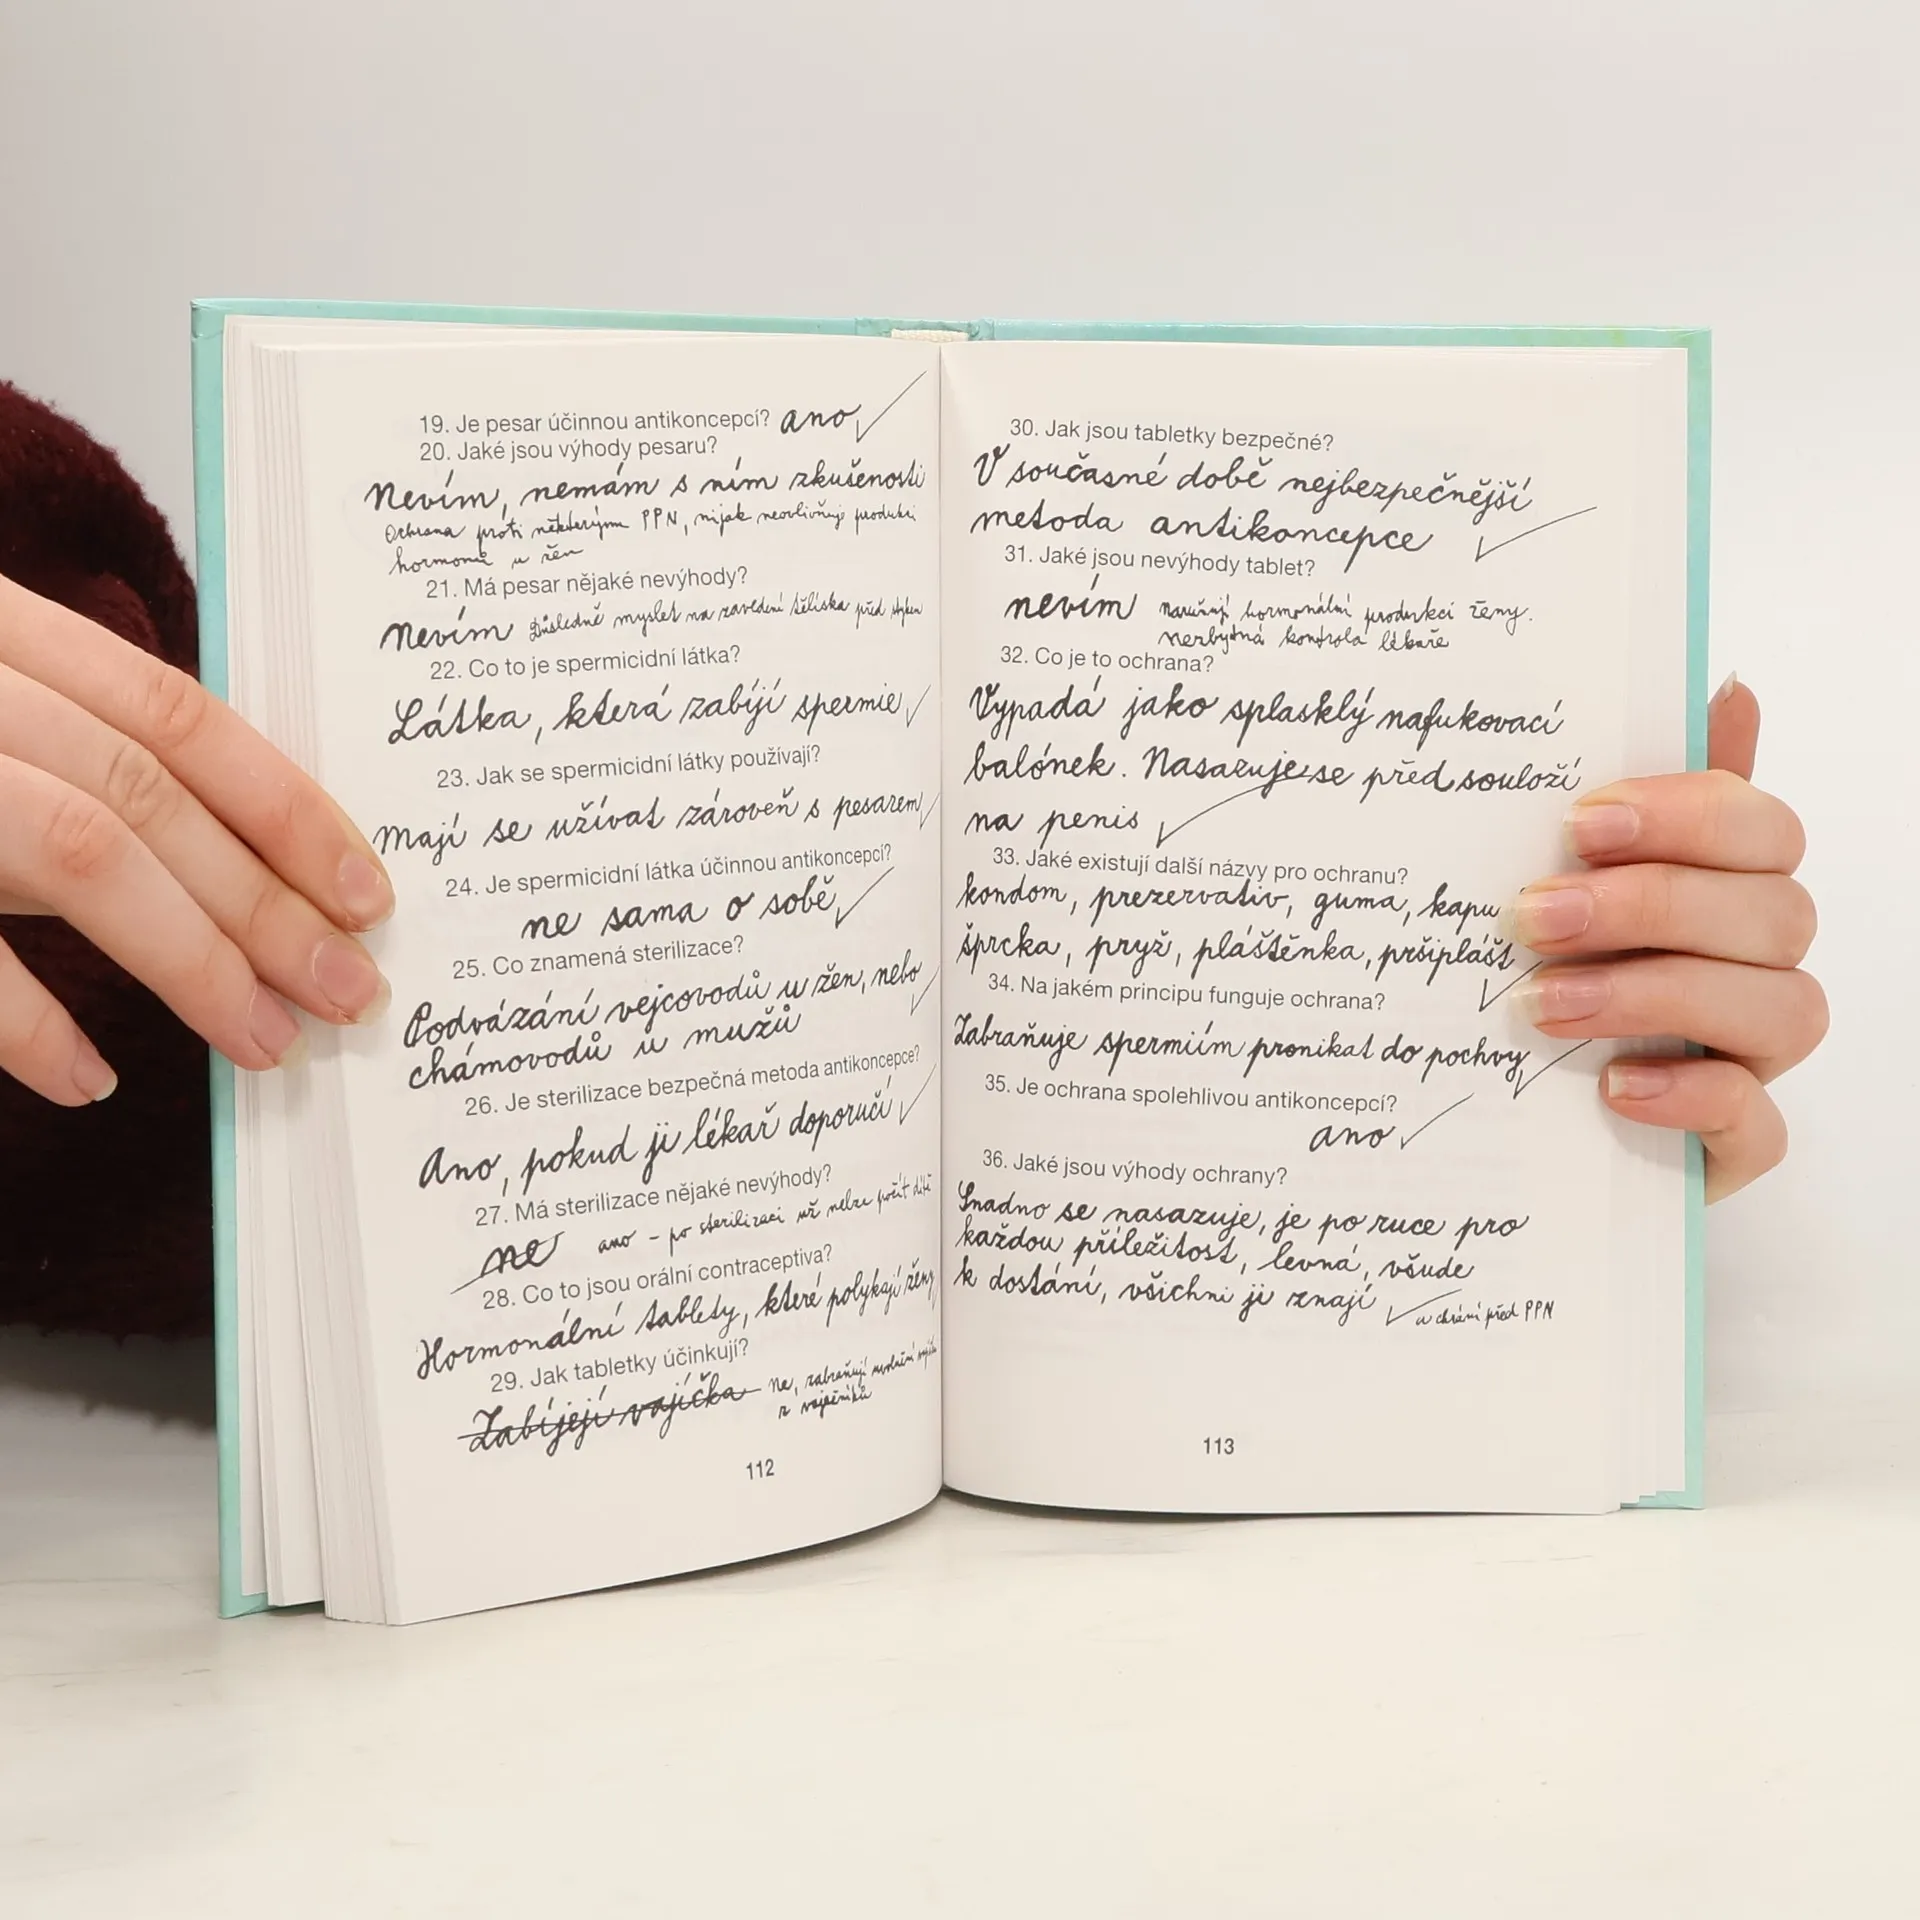 19. Je pesar účinnou antikoncepcí? ano
20. Jaké jsou výhody pesaru?
Nevím, nemám s ním zkušenosti
Ochrana proti některým PPN, nijak neovlivňuje produkci
hormonů u žen
21. Má pesar nějaké nevýhody?
Nevím Důsledně myslet na zavedení tělíska před stykem
22. Co to je spermicidní látka?
Látka, která zabíjí spermie
23. Jak se spermicidní látky používají?
Mají se užívat zároveň s pesarem
24. Je spermicidní látka účinnou antikoncepcí?
ne sama o sobě
25. Co znamená sterilizace?
Podvázání vejcovodů u žen, nebo
chámovodů u mužů
26. Je sterilizace bezpečná metoda antikoncepce?
Ano, pokud ji lékař doporučí
27. Má sterilizace nějaké nevýhody?
ne ano - po sterilizaci už nelze počít dítě
28. Co to jsou orální contraceptiva?
Hormonální tablety, které polykají ženy
29. Jak tabletky účinkují?
Zabíjejí vajíčka Ne, zabraňují uvolnění
z vaječníků
112
30. Jak jsou tabletky bezpečné?
V současné době nejbezpečnější
metoda antikoncepce
31. Jaké jsou nevýhody tablet?
nevím narušují hormonální produkci ženy.
nezbytná kontrola lékaře
32. Co je to ochrana?
Vypadá jako splasklý nafukovací
balónek. Nasazuje se před souloží
na penis
33. Jaké existují další názvy pro ochranu?
kondom, prezervativ, guma, kapu
šprcka, pryž, pláštěnka, pršiplášt
34. Na jakém principu funguje ochrana?
Zabraňuje spermiím pronikat do pochvy
35. Je ochrana spolehlivou antikoncepcí?
ano
36. Jaké jsou výhody ochrany?
Snadno se nasazuje, je po ruce pro
každou příležitost, levná, všude
k dostání, všichni ji znají
a chrání před PPN
113